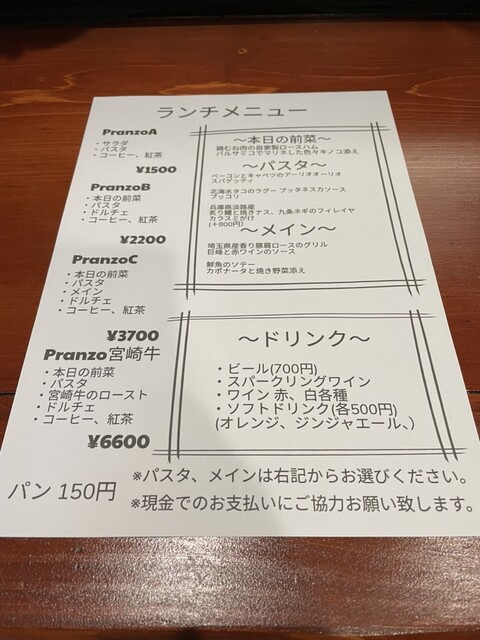 ランチメニュー
PranzoA
・サラダ
・パスタ
・コーヒー、紅茶
¥1500
PranzoB
・本日の前菜
・パスタ
・ドルチェ
・コーヒー、紅茶
¥2200
PranzoC
・本日の前菜
・パスタ
・メイン
・ドルチェ
・コーヒー、紅茶
¥3700
Pranzo宮崎牛
・本日の前菜
・パスタ
・宮崎牛のロースト
・ドルチェ
・コーヒー、紅茶
¥6600
パン 150円
〜本日の前菜〜
鶏むね肉の自家製ロースハム
バルサミコでマリネした色々キノコ添え
〜パスタ〜
ベーコンとキャベツのアーリオオーリオ
スパゲッティ
北海水タコのラグー プッタネスカソース
ブッコリ
兵庫県淡路産
炙り鱧と焼きナス、九条ネギのフィレイヤ
カラスミがけ
(+800円)
〜メイン〜
埼玉県産香り豚肩ロースのグリル
巨峰と赤ワインのソース
鮮魚のソテー
カポナータと焼き野菜添え
〜ドリンク〜
・ビール(700円)
・スパークリングワイン
・ワイン 赤、白各種
・ソフトドリンク(各500円)
(オレンジ、ジンジャエール、)
※パスタ、メインは右記からお選びください。
※現金でのお支払いにご協力お願い致します。